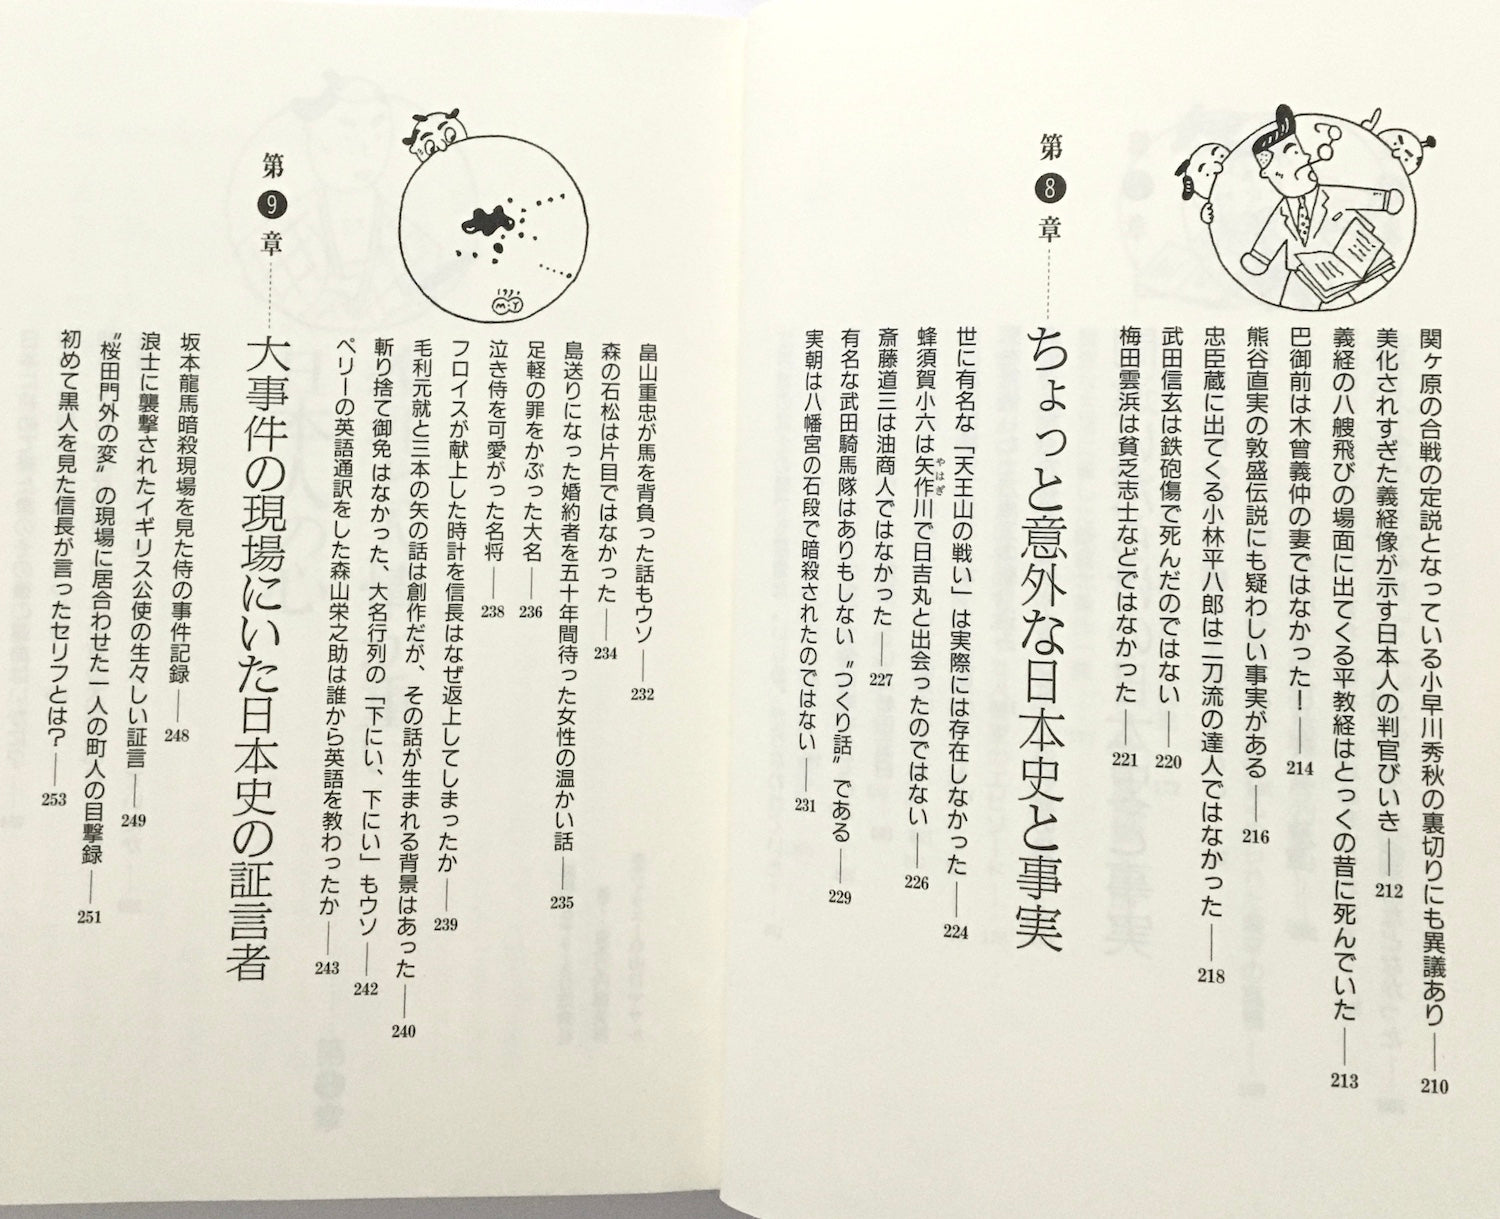 関ヶ原の合戦の定説となっている小早川秀秋の裏切りにも異議あり――210
美化されすぎた義経像が示す日本人の判官びいき――212
義経の八艘飛びの場面に出てくる平教経はとっくの昔に死んでいた――213
巴御前は木曾義仲の妻ではなかったー――214
熊谷直実の敦盛伝説にも疑わしい事実がある――216
忠臣蔵に出てくる小林平八郎は二刀流の達人ではなかった――218
武田信玄は鉄砲傷で死んだのではない――220
梅田雲浜は貧乏志士などではなかった――221
第8章……ちょっと意外な日本史と事実
世に有名な「天王山の戦い」は実際には存在しなかった――224
蜂須賀小六は矢作川で日吉丸と出会ったのではない――226
やはぎ
斎藤道三は油商人ではなかった――227
有名な武田騎馬隊はありもしない〝つくり話〟である――229
実朝は八幡宮の石段で暗殺されたのではない――231
畠山重忠が馬を背負った話もウソ――232
森の石松は片目ではなかった――234
島送りになった婚約者を五十年間待った女性の温かい話――235
足軽の罪をかぶった大名――236
泣き侍を可愛がった名将――238
フロイスが献上した時計を信長はなぜ返上してしまったか――239
毛利元就と三本の矢の話は創作だが、その話が生まれる背景はあった――240
斬り捨て御免はなかった、大名行列の「下にい、下にい」もウソ――242
ペリーの英語通訳をした森山栄之助は誰から英語を教わったか――243
第9章……大事件の現場にいた日本史の証言者
坂本龍馬暗殺現場を見た侍の事件記録――248
浪士に襲撃されたイギリス公使の生々しい証言――249
〝桜田門外の変〟の現場に居合わせた一人の町人の目撃録――251
初めて黒人を見た信長が言ったセリフとは?――253